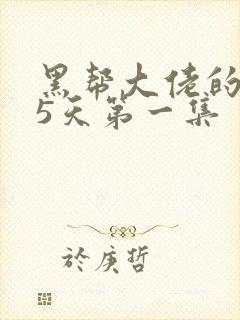 黑帮大佬的
5天第一集
於庚哲